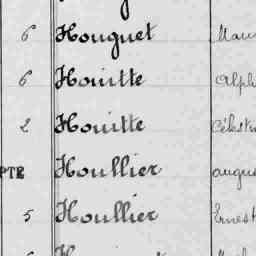 6 Houguet
6 Houitte Alph
2 Houitte Célest
PTE Houllier augus
5 Houllier Ernest